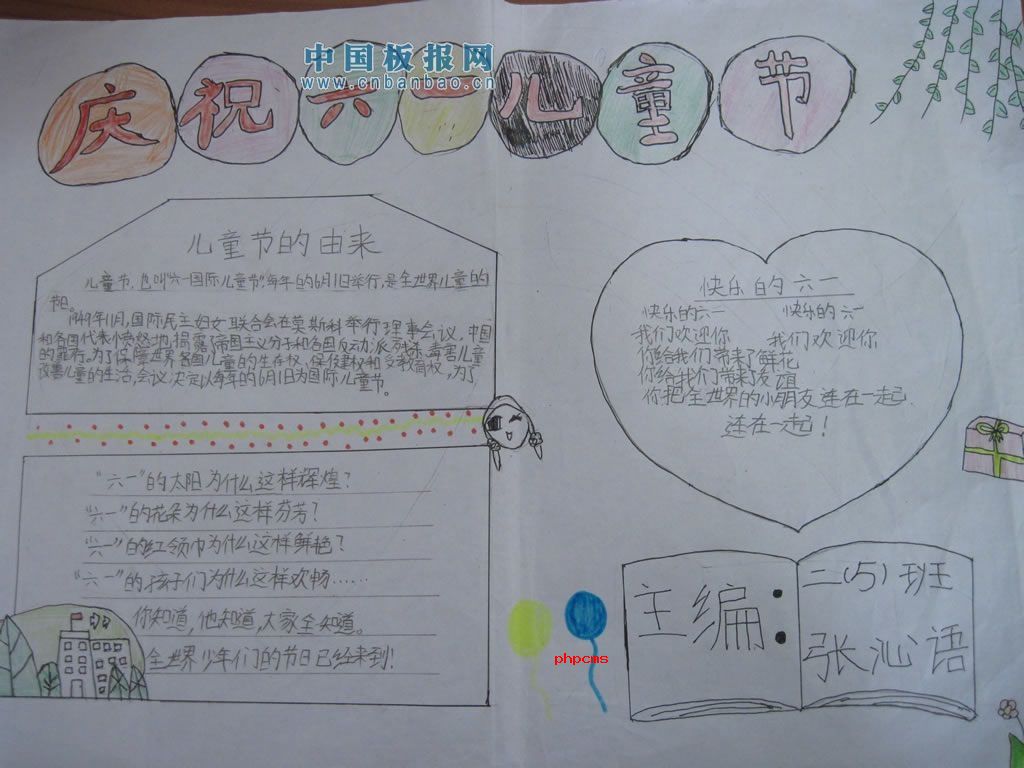 中国板报网
www.cnbanbao.cn
庆祝六一儿童节
儿童节的由来
儿童节,也叫"六一国际儿童节",每年的6月1日举行,是全世界儿童的
节日。
1949年11月,国际民主妇女联合会在莫斯科举行理事会议,中国
和各国代表愤怒地揭露了帝国主义分子和各国反动派残杀、毒害儿童
的罪行。为了保障世界各国儿童的生存权、保健权和受教育权,为了
改善儿童的生活,会议决定以每年的6月1日为国际儿童节。
"六一"的太阳为什么这样辉煌?
"六一"的花朵为什么这样芬芳?
"六一"的红领巾为什么这样鲜艳?
"六一"的孩子们为什么这样欢畅……
你知道,他知道,大家全知道。
全世界少年们的节日已经来到!
快乐的六一
快乐的六一 快乐的六一
我们欢迎你 我们欢迎你
你给我们带来了鲜花
你给我们带来了友谊
你把全世界的小朋友连在一起
连在一起!
主编:
二(5)班
张沁语
phpcms